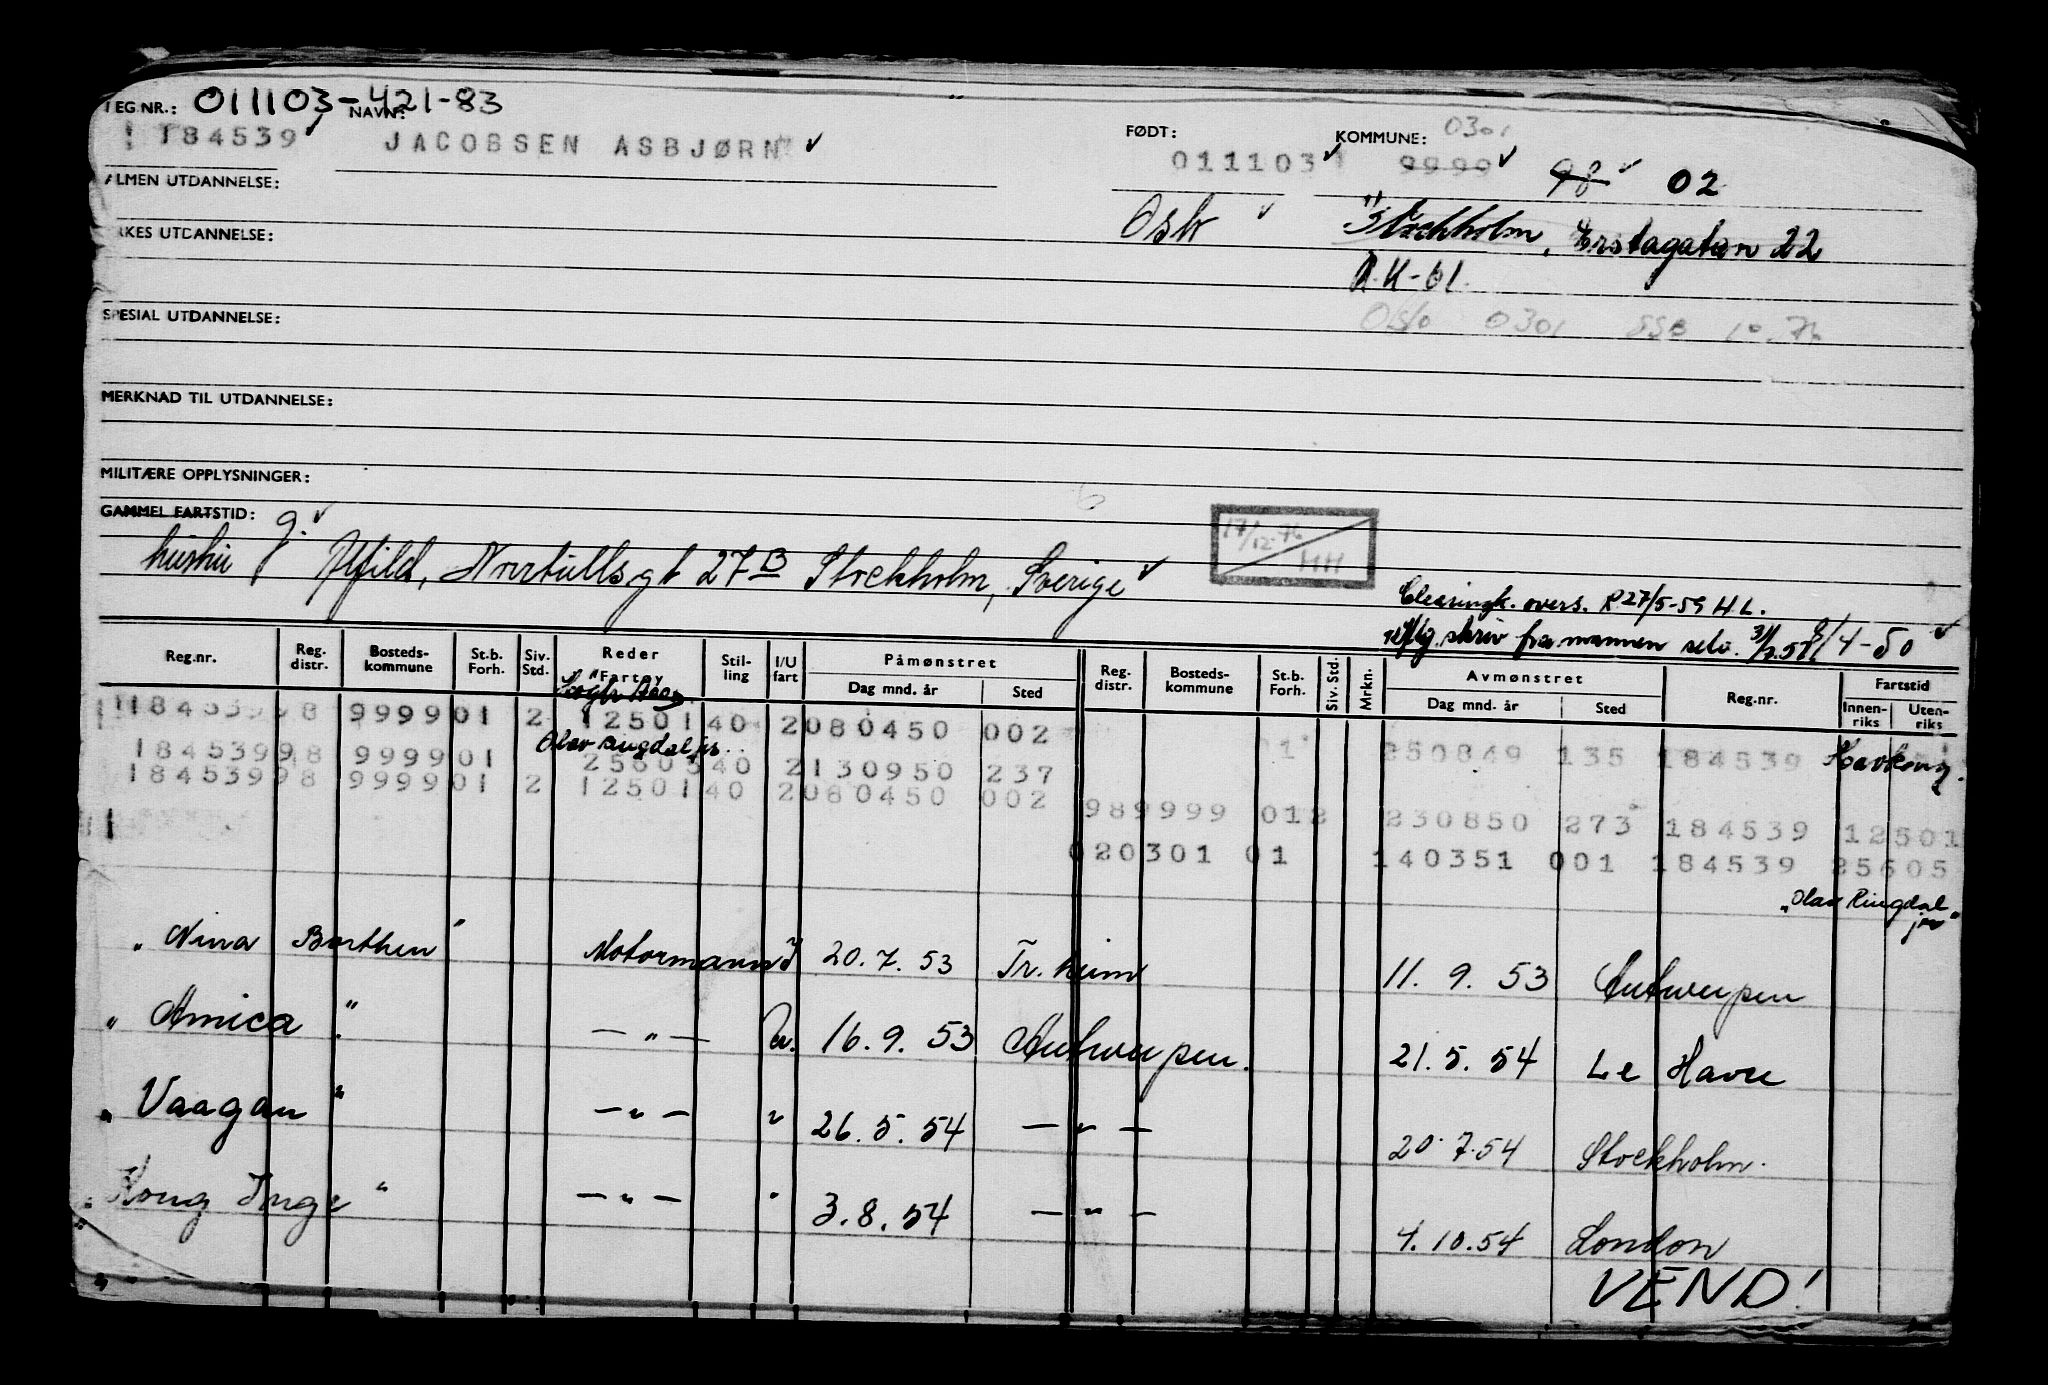 REG.NR.: 011103-421-83 NAVN:
184539 JACOBSEN ASBJØRN FØDT: 011103 KOMMUNE: 0301 9999 98 02
ALMEN UTDANNELSE:
Oslo Stockholm, Erstagatan 22
YRKES UTDANNELSE:
Oslo 0301 SSB 10.76
SPESIAL UTDANNELSE:
MERKNAD TIL UTDANNELSE:
MILITÆRE OPPLYSNINGER:
GAMMEL FARTSTID:
17/12-76 HH
hustru g. Alfild, Norrtullsgt 27B Stockholm, Sverige
Clearingk. overs. R 27/5-59 H.L.
skriv fra mannen selv. 4-50
Reg.nr. Reg. distr. Bosteds- kommune St.b. Forh. Siv. Std. Reder Fartøy Stil- ling I/U fart Påmønstret Dag mnd. år Sted Reg. distr. Bosteds- kommune St.b. Forh. Siv. Std. Mrkn. Avmønstret Dag mnd. år Sted Reg.nr. Fartstid Innen- riks Uten- riks
184539 98 9999 01 2 12501 40 2 080450 002
Olav Ringdal jr.
1 250849 135 184539 Havkong
184539 98 9999 01 25605 40 2 130950 237
184539 98 9999 01 2 12501 40 2 080450 002
989999 012 230850 273 184539 12501
020301 01 140351 001 184539 25605
"Olav Ringdal jr"
"Nina Borthen" Motormann 20.7.53 Tr.heim 11.9.53 Antwerpen
"Amica" — " — U. 16.9.53 Antwerpen. 21.5.54 Le Havre
"Vaagan" — " — " 26.5.54 — " — 20.7.54 Stockholm.
"Kong Inge" — " — " 3.8.54 — " — 4.10.54 London
VEND!